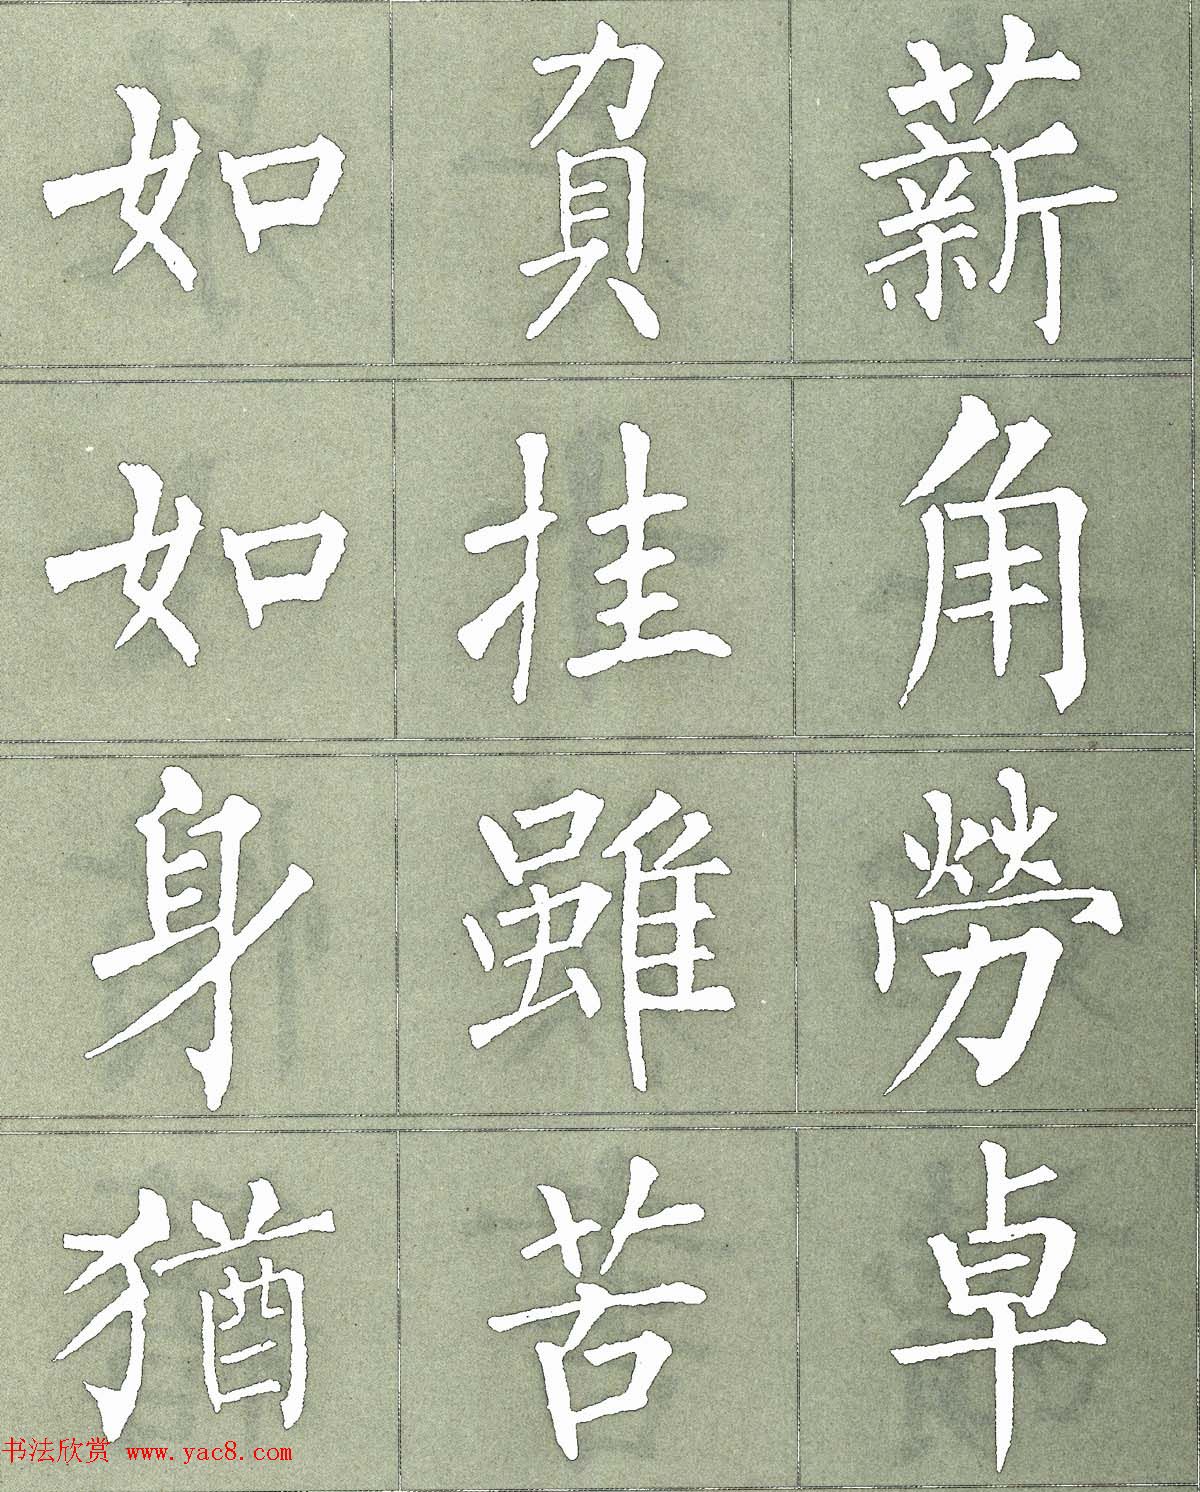 如負薪
如挂角
身雖勞
猶苦卓
书法欣赏 www.yac8.com